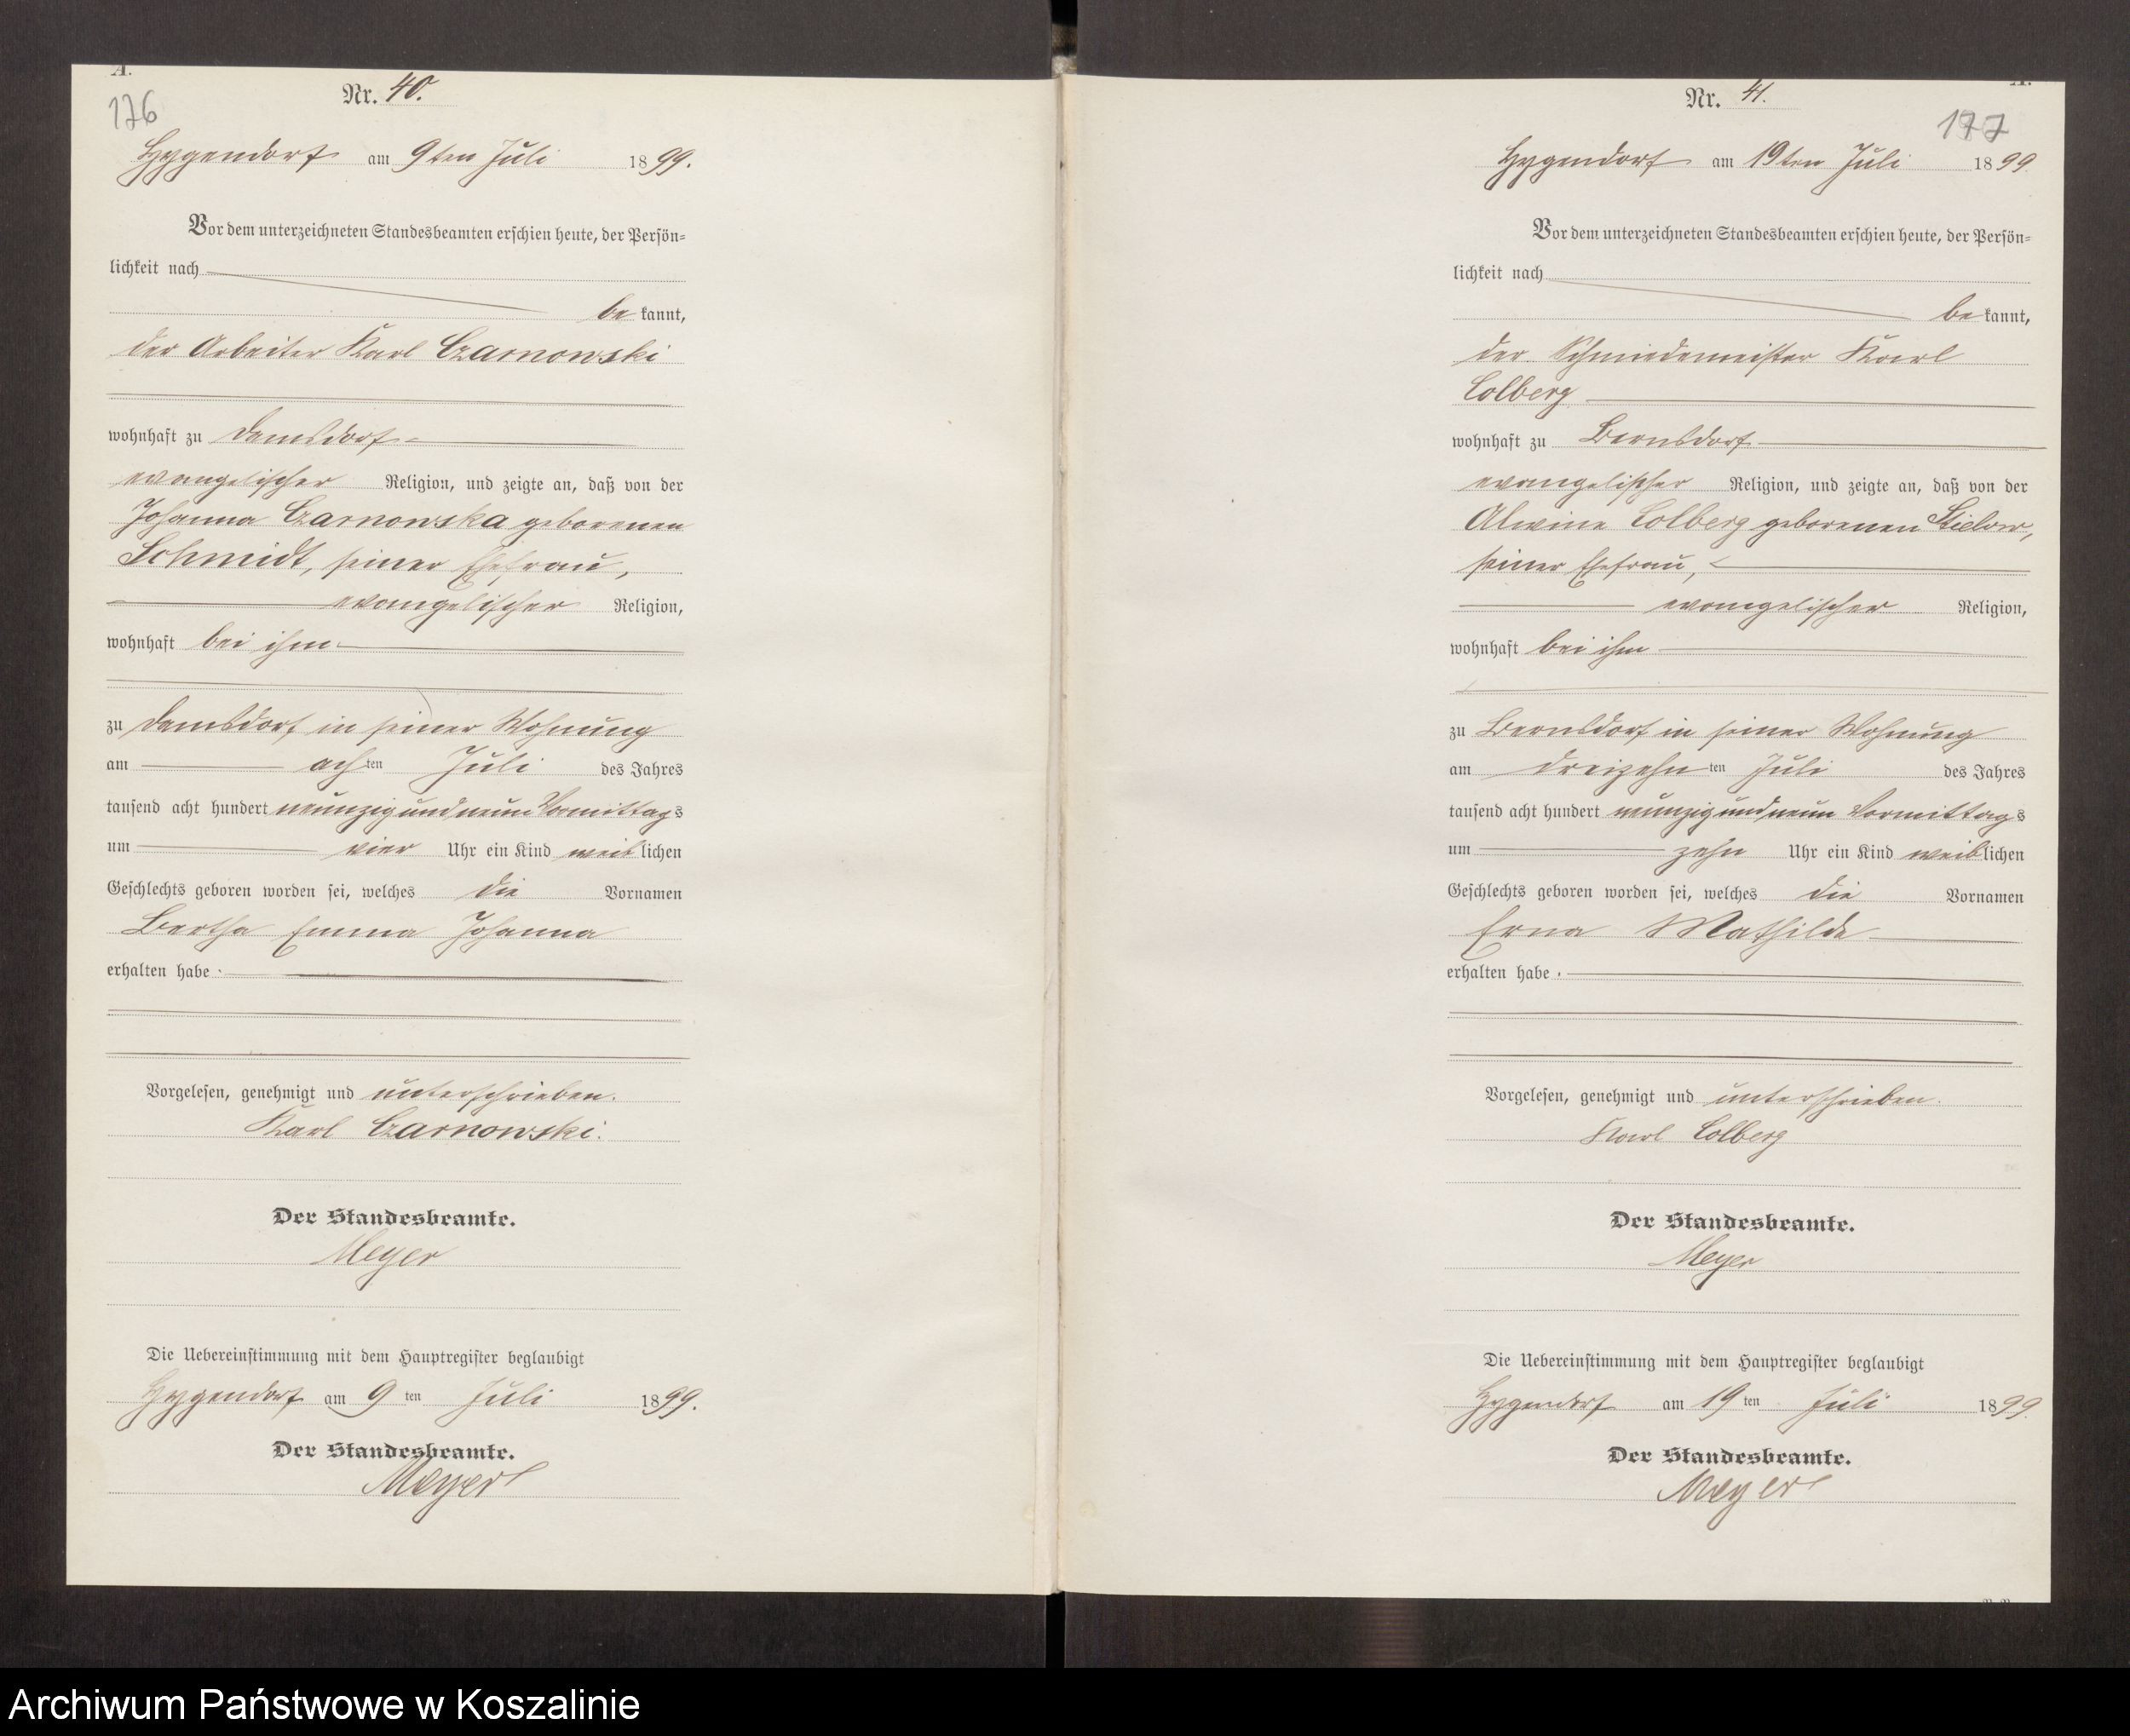 A.
Nr. 40.
176
Hygendorf am 9ten Juli 1899.
Vor dem unterzeichneten Standesbeamten erschien heute, der Persön=
lichkeit nach
be kannt,
der Arbeiter Karl Czarnowski
wohnhaft zu Damsdorf
evangelischer Religion, und zeigte an, daß von der
Johanna Czarnowska geborenen
Schmidt, seiner Ehefrau,
evangelischer Religion,
wohnhaft bei ihm
zu Damsdorf in seiner Wohnung
am achten Juli des Jahres
tausend acht hundert neunzig und neun Vormittags
um vier Uhr ein Kind weiblichen
Geschlechts geboren worden sei, welches die Vornamen
Bertha Emma Johanna
erhalten habe.
Vorgelesen, genehmigt und unterschrieben.
Karl Czarnowski.
Der Standesbeamte.
Meyer
Die Uebereinstimmung mit dem Hauptregister beglaubigt
Hygendorf am 9 ten Juli 1899.
Der Standesbeamte.
Meyer
A.
Nr. 41.
177
Hygendorf am 19ten Juli 1899
Vor dem unterzeichneten Standesbeamten erschien heute, der Persön=
lichkeit nach
be kannt,
der Schmiedemeister Karl
Colberg
wohnhaft zu Bernsdorf
evangelischer Religion, und zeigte an, daß von der
Alwine Colberg geborenen Stielow,
seiner Ehefrau,
evangelischer Religion,
wohnhaft bei ihm
zu Bernsdorf in seiner Wohnung
am dreizehnten Juli des Jahres
tausend acht hundert neunzig und neun Vormittags
um zehn Uhr ein Kind weiblichen
Geschlechts geboren worden sei, welches die Vornamen
Erna Mathilde
erhalten habe.
Vorgelesen, genehmigt und unterschrieben.
Karl Colberg
Der Standesbeamte.
Meyer
Die Uebereinstimmung mit dem Hauptregister beglaubigt
Hygendorf am 19 ten Juli 1899.
Der Standesbeamte.
Meyer
Archiwum Państwowe w Koszalinie